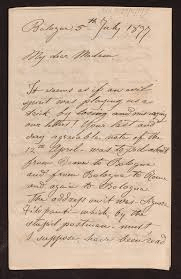 Bologna 5th July 1877
My dear Madam
It seems as if an evil
spirit was playing us a
trick by losing and
one letter! Your last and
very agreeable note of the
12th April was to
from Rome to Bologna
and from Bologna to Rome
and again to Bologna
The address on it was Signor
Filopanti which by the
stupid postman must
I suppose have been read